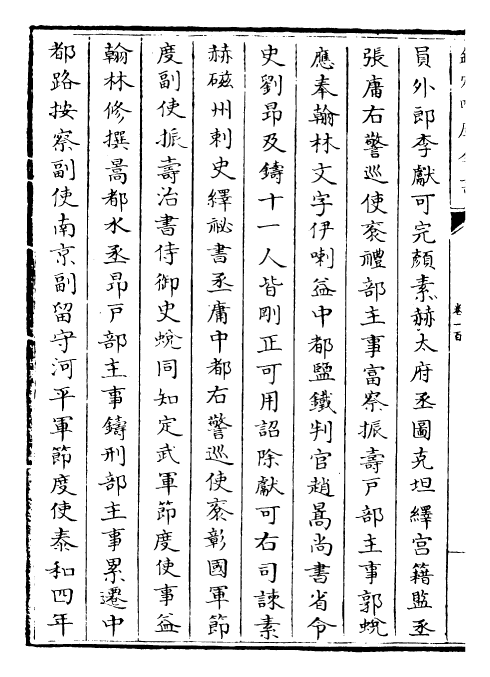 員外郎李獻可完顔素赫太府丞圖克坦繹宫籍監丞
張庸右警巡使衮禮部主事富察振壽戸部主事郭蛻
應奉翰林文字伊喇益中都鹽鐵判官趙暠尚書省令
史劉昂及鑄十一人皆剛正可用詔除獻可右司諫素
赫磁州刺史繹祕書丞庸中都右警巡使衮彰國軍節
度副使振壽治書侍御史蛻同知定武軍節度使事益
翰林修撰暠都水丞昂戸部主事鑄刑部主事累遷中
都路按察副使南京副留守河平軍節度使泰和四年
卷一百